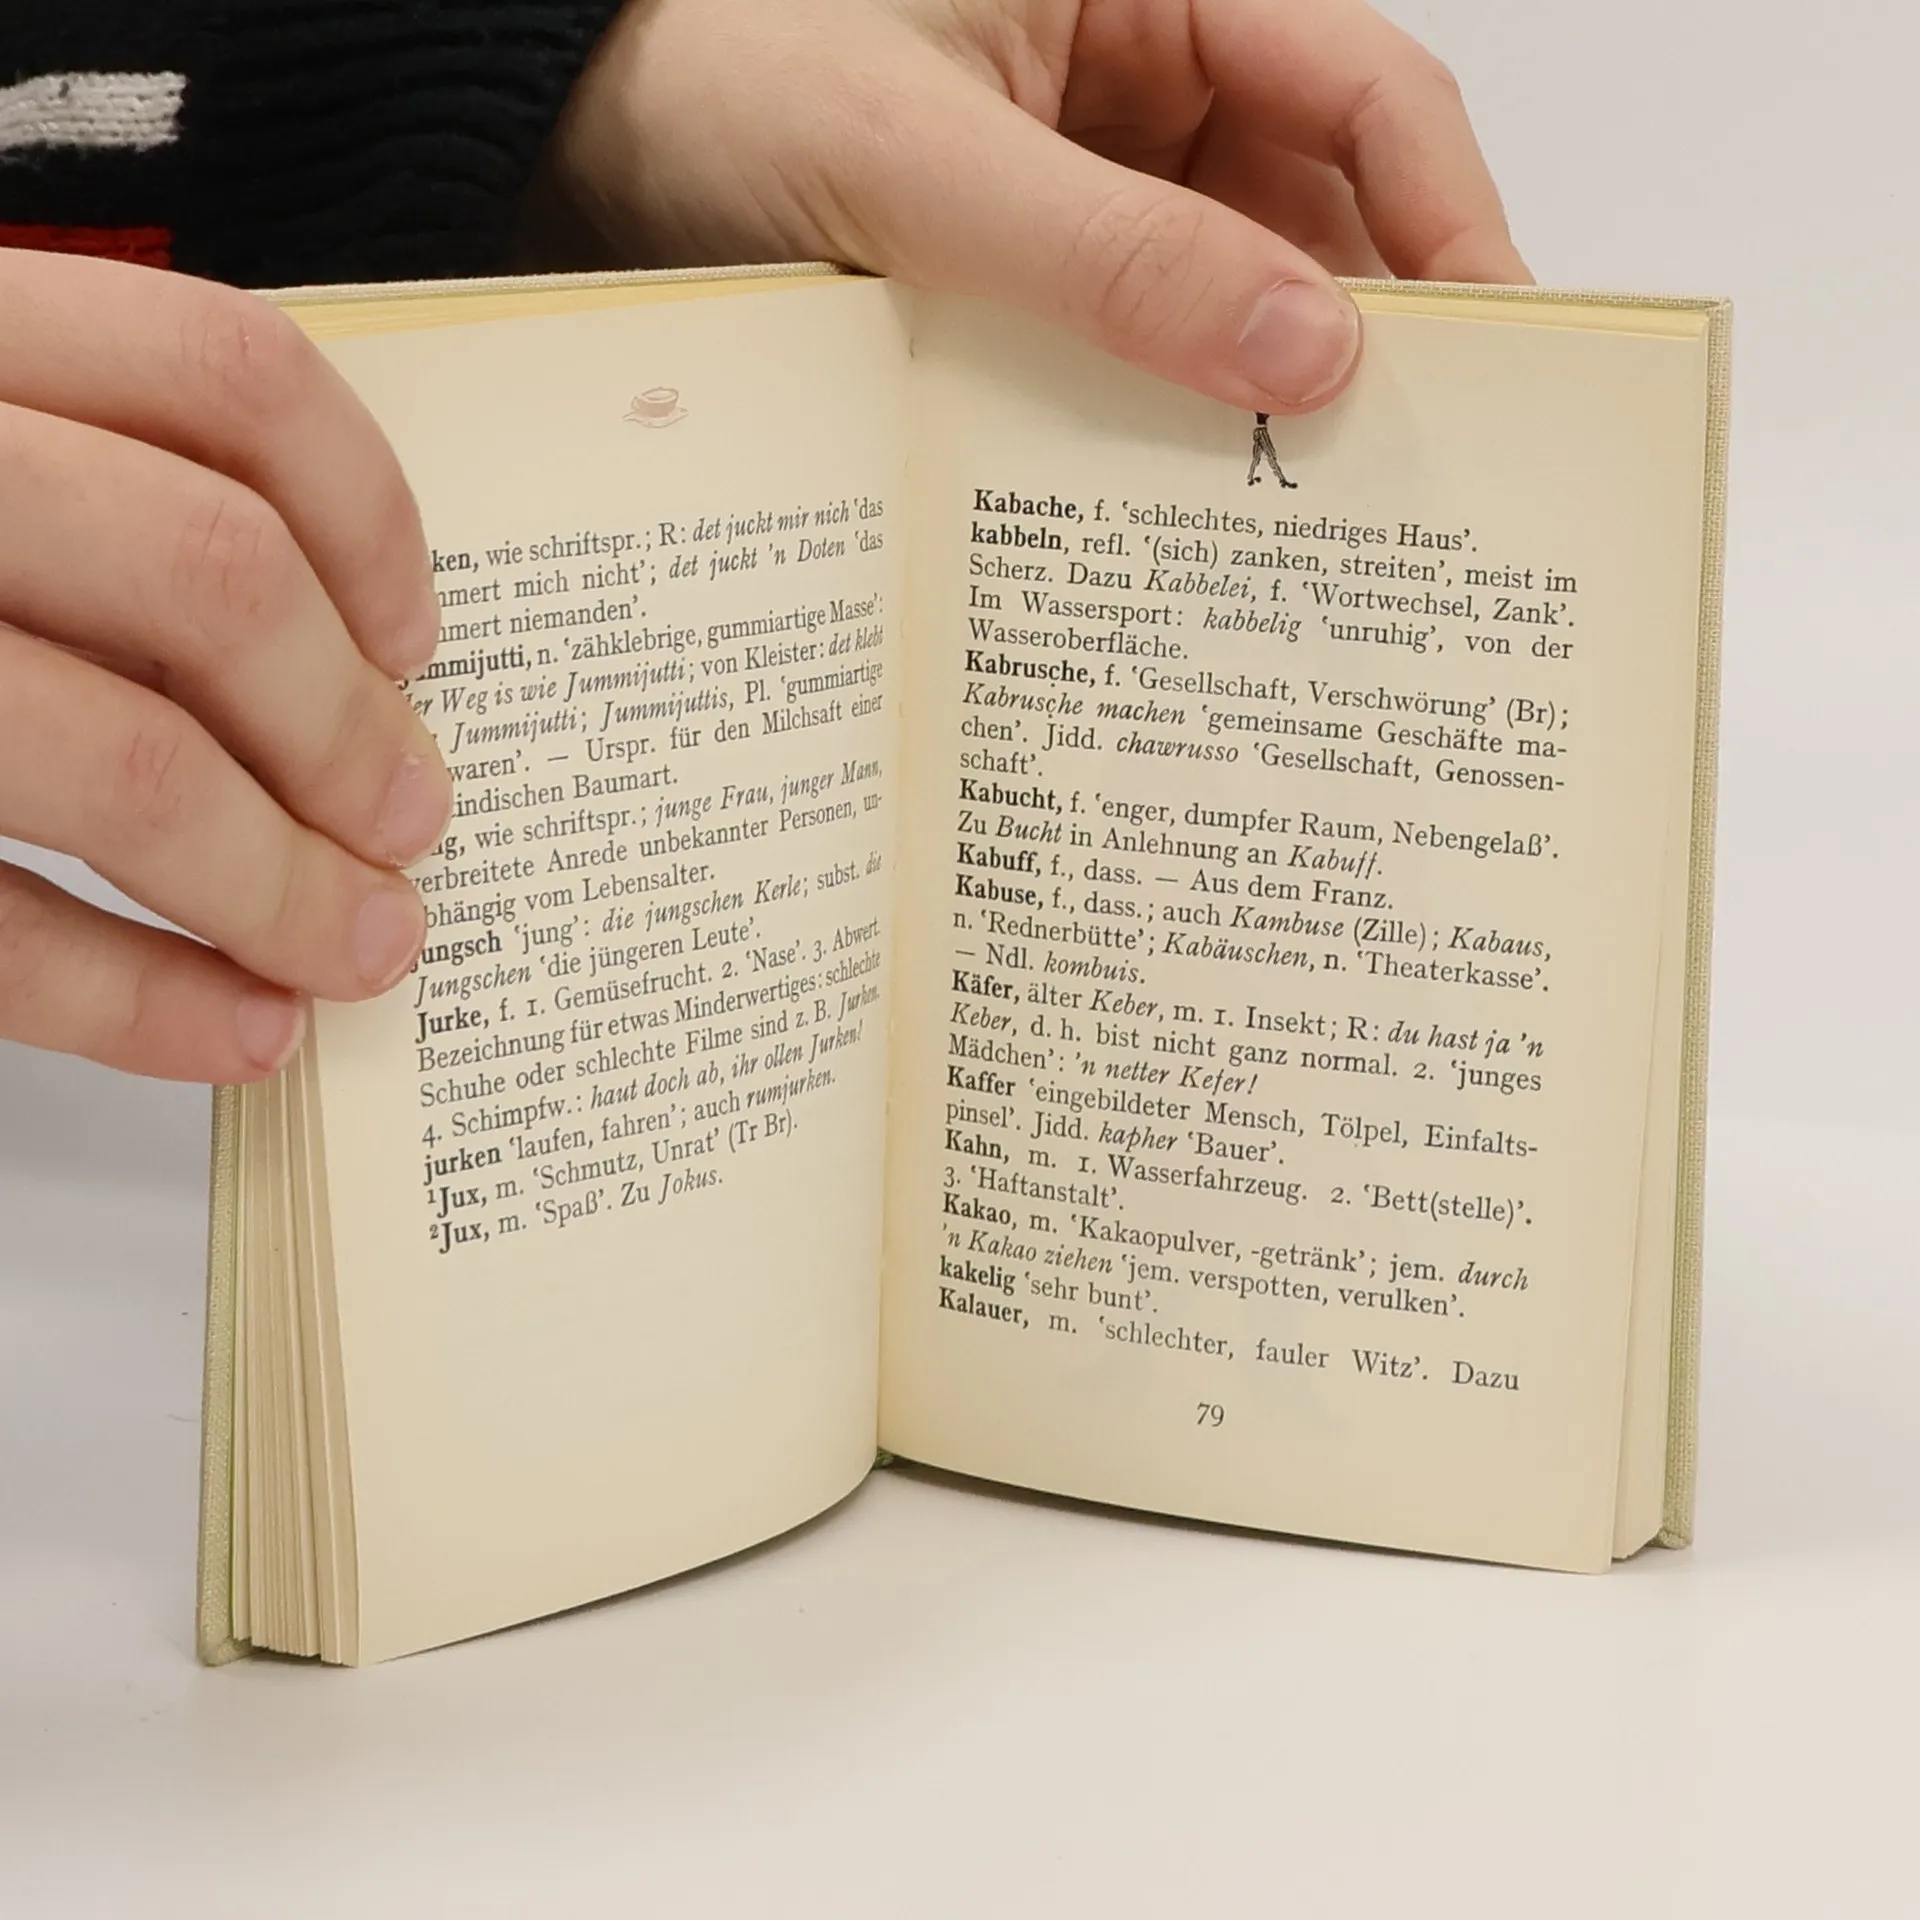 ken, wie schriftspr.; R: det juckt mir nich ‘das
mmert mich nicht’; det juckt ’n Doten ‘das
mmert niemanden’.
mmijutti, n. ‘zähklebrige, gummiartige Masse’:
er Weg is wie Jummijutti; von Kleister: det klebt
Jummijutti; Jummijuttis, Pl. ‘gummiartige
waren’. — Urspr. für den Milchsaft einer
indischen Baumart.
ng, wie schriftspr.; junge Frau, junger Mann,
verbreitete Anrede unbekannter Personen, un-
bhängig vom Lebensalter.
jungsch ‘jung’: die jungschen Kerle; subst. die
Jungschen ‘die jüngeren Leute’.
Jurke, f. 1. Gemüsefrucht. 2. ‘Nase’. 3. Abwert.
Bezeichnung für etwas Minderwertiges: schlechte
Schuhe oder schlechte Filme sind z. B. Jurken.
4. Schimpfw.: haut doch ab, ihr ollen Jurken!
jurken ‘laufen, fahren’; auch rumjurken.
¹Jux, m. ‘Schmutz, Unrat’ (Tr Br).
²Jux, m. ‘Spaß’. Zu Jokus.
Kabache, f. ‘schlechtes, niedriges Haus’.
kabbeln, refl. ‘(sich) zanken, streiten’, meist im
Scherz. Dazu Kabbelei, f. ‘Wortwechsel, Zank’.
Im Wassersport: kabbelig ‘unruhig’, von der
Wasseroberfläche.
Kabrusche, f. ‘Gesellschaft, Verschwörung’ (Br);
Kabrusche machen ‘gemeinsame Geschäfte ma-
chen’. Jidd. chawrusso ‘Gesellschaft, Genossen-
schaft’.
Kabucht, f. ‘enger, dumpfer Raum, Nebengelaß’.
Zu Bucht in Anlehnung an Kabuff.
Kabuff, f., dass. — Aus dem Franz.
Kabuse, f., dass.; auch Kambuse (Zille); Kabaus,
n. ‘Rednerbütte’; Kabäuschen, n. ‘Theaterkasse’.
— Ndl. kombuis.
Käfer, älter Keber, m. 1. Insekt; R: du hast ja ’n
Keber, d. h. bist nicht ganz normal. 2. ‘junges
Mädchen’: ’n netter Kefer!
Kaffer ‘eingebildeter Mensch, Tölpel, Einfalts-
pinsel’. Jidd. kapher ‘Bauer’.
Kahn, m. 1. Wasserfahrzeug. 2. ‘Bett(stelle)’.
3. ‘Haftanstalt’.
Kakao, m. ‘Kakaopulver, -getränk’; jem. durch
’n Kakao ziehen ‘jem. verspotten, verulken’.
kakelig ‘sehr bunt’.
Kalauer, m. ‘schlechter, fauler Witz’. Dazu
79